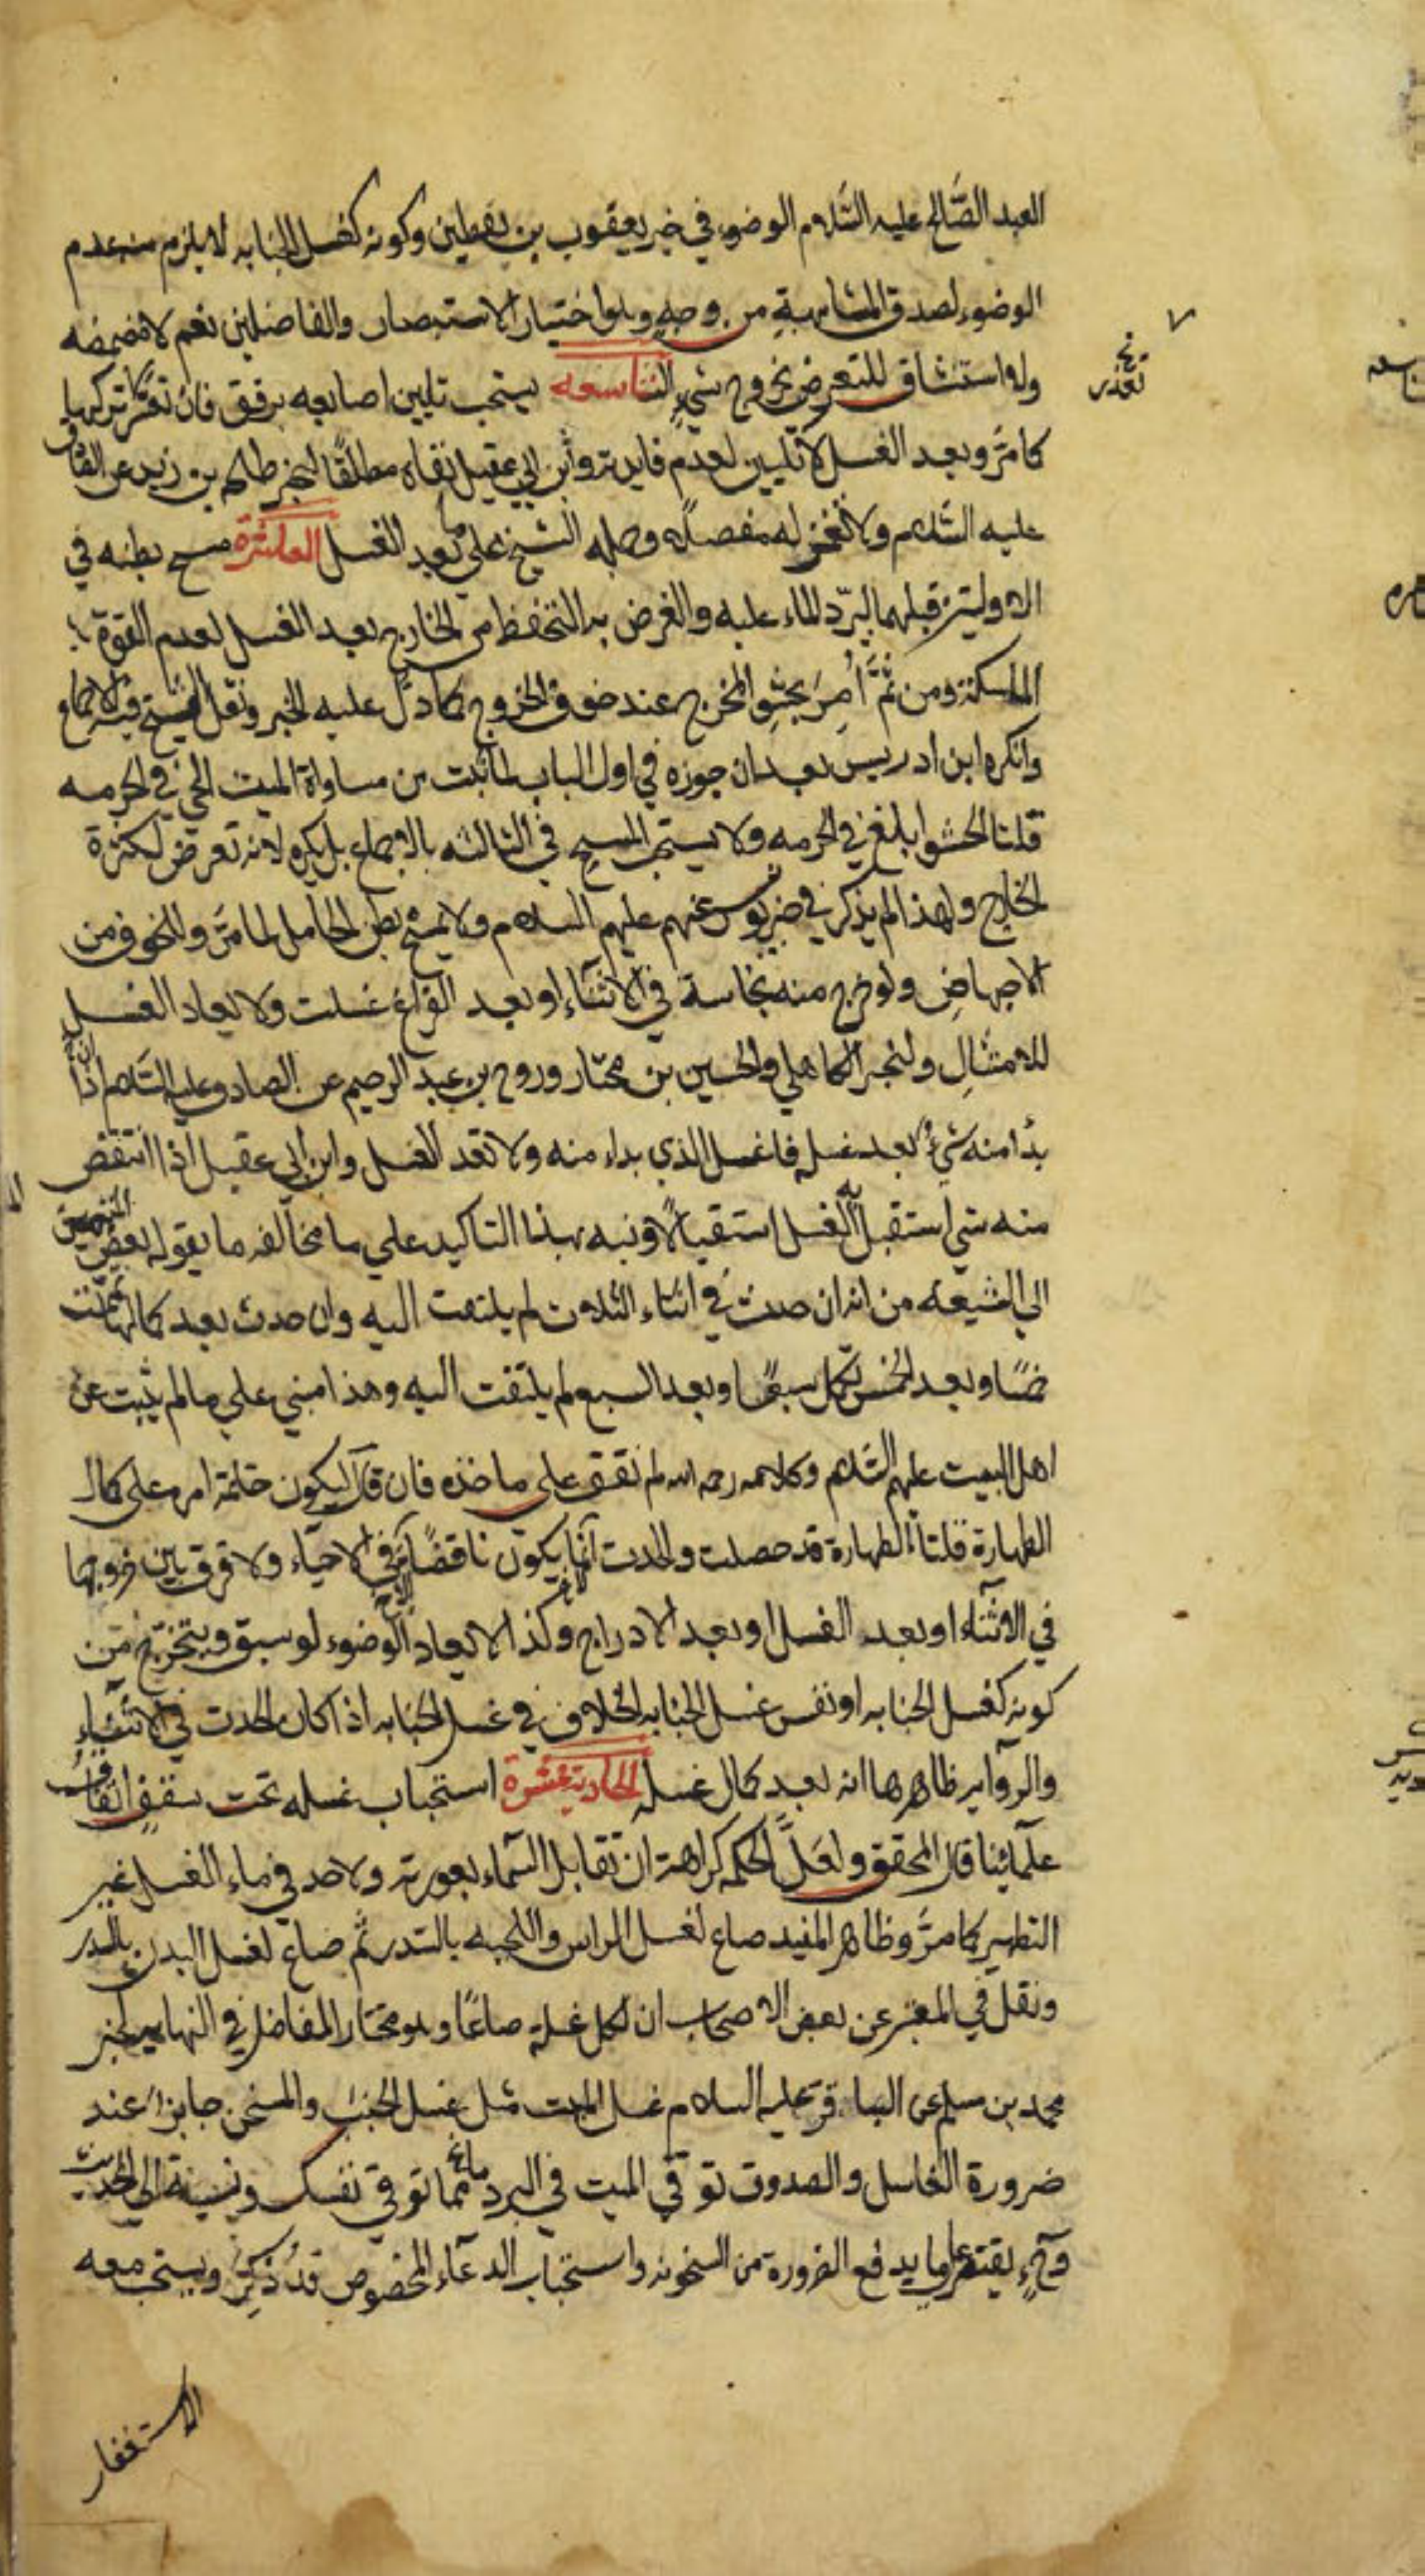 العبد الصَّالح عليه السَّلام الوضوء في خبر يعقوب بن يقطين وكونه كغسل الجنابه لا يلزم منه عدم
الوضوء لصدق المشابهةِ من وجهٍ وهو اختيار الاستبصار والفاضلين نعم لا مضمضه
ولا استنشاق للتعرض بخروج شيءٍ التاسعه يستحب تليين اصابعه برفق فان تعسَّر تركها
نخ تعذر
كما مَرَّ وبعد الغسل لا تليين لعدم فايدته وابن ابي عقيل نفاه مطلقًا لخبر طلحه بن زيد عن الصَّادق
عليه السَّلام ولا تغمز له مفصلًا وحمله الشيخ علي ما بعد الغسل العاشرة مسح بطنه في
الاوليتين قبلهما لبَرِّد الماء عليه والغرض به التحفظ من الخارج بعد الغسل لعدم القوة
الماسكة ومن ثَمَّ أُمِرَ بحشوِ المخرج عند خوف الخروج كما دلَّ عليه الخبر ونقل الشيخ فيه الاجماع
وانكره ابن ادريس بعد ان جوزه في اول الباب لما ثبت من مساواة الميت الحيّ في الحرمه
قلنا الحشو ابلغ في الحرمه ولا يستحب المسح في الثالثه بالاجماع بل يكره لانه تعرض لكثرة
الخارج ولهذا لم يذكر في خبر يونس عنهم عليهم السلام ولا يمسح بطن الحامل لما مَرَّ وللخوف من
الاجهاضِ ولو خرج منه نجاسة في الاثناءِ او بعد الفراغ غسلت ولا يعاد الغسل
للامتثالِ ولخبر الكاهلي والحسين بن مختار وروح بن عبد الرحيم عن الصادق عليه السَّلام ان
بدأ منه شيءٌ بعد غسله فاغسل الذي بداء منه ولا تعد الغسل وابن ابي عقيل اذا انتقض
منه شي استقبل به الغسل استقبالًا ونبه بهذا التاكيد علي ما مخالفه ما يقوله بعض المنتمين
الي الشيعه من انه ان حدث في اثناء الثلاث لم يلتفت اليه وان حدث بعد كمالها تُمِّمت
خمسًا وبعد الخمس تكمل سبعًا وبعد السبع لم يلتفت اليه وهذا مبني علي ما لم يثبت عن
اهل البيت عليهم السَّلام وكلامه رحمه الله لم نقف علي ماخذه فان قال ليكون خاتمة امره علي كمال
الطهارة قلنا الطهارة قد حصلت والحدث انما يكون ناقضًا في الاحياء ولا فرق بين خروجها
في الاثناء او بعد الغسل او بعد الادراج وكذا لا يعاد الوضوء لو سبق ويتخرّج من
كونه كغسل الجنابه او نفس غسل الجنابه الخلاف في غسل الجنابه اذا كان الحدث في الاثناءِ
والروايه ظاهرها انه بعد كمال غسله الحادية عشرة استحباب غسله تحت سقفٍ اتفاقُ
علمائِنا قال المحقق ولعلَّ الحكمه كراهة ان تقابل السَّماء بعورته ولا حد في ماء الغسل غير
التطهير كما مرَّ وظاهر المفيد صاع لغسل الراس واللحيه بالسّدر ثم صاع لغسل البدن بالسدر
ونقل في المعتبر عن بعض الاصحاب ان لكل غسله صاعًا وهو مختار الفاضل في النهايه لخبر
محمد بن مسلم عن الباقر عليه السلام غسل الميت مثل غسل الجنب والمسخن جايزًا عند
ضرورة الغاسل والصدوق توقي الميت في البرد مما توقي نفسك ونسبه الي الحديث
وح يقتصر علي ما يدفع الضرورة من السخونه واستحباب الدعاء المخصوص قد ذُكِرَ ويستحب معه
الاستغفار